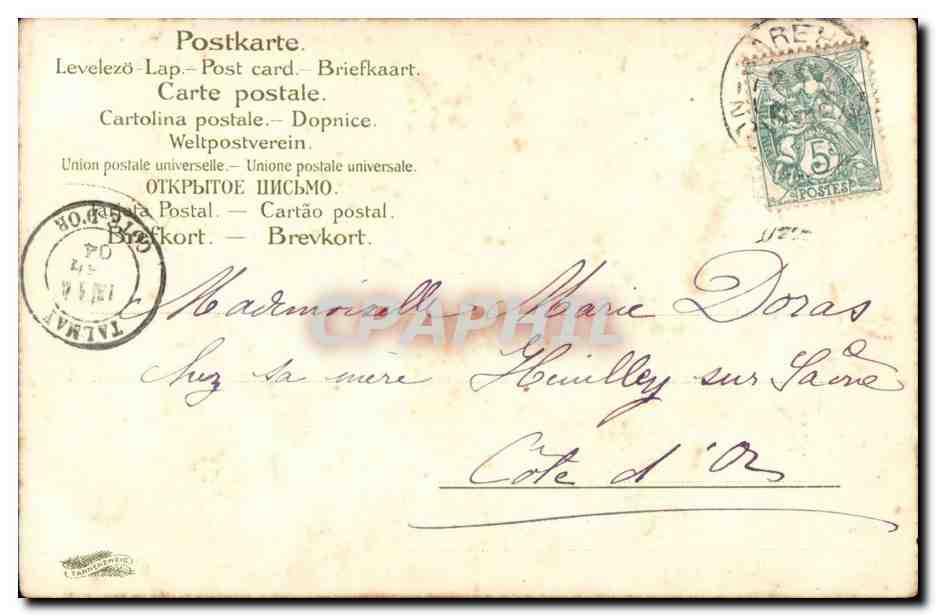 Postkarte.
Levelezö-Lap.– Post card.– Briefkaart.
Carte postale.
Cartolina postale.– Dopnice.
Weltpostverein.
Union postale universelle.– Unione postale universale.
ОТКРЫТОЕ ПИСЬМО.
Tarjeta Postal. — Cartão postal.
Brefkort. — Brevkort.
5c
POSTES
TALMAY
COTE D'OR
04
Mademoiselle Marie Doras
chez sa mère Heuilley sur Saône
Côte d'Or
CPAPHIL